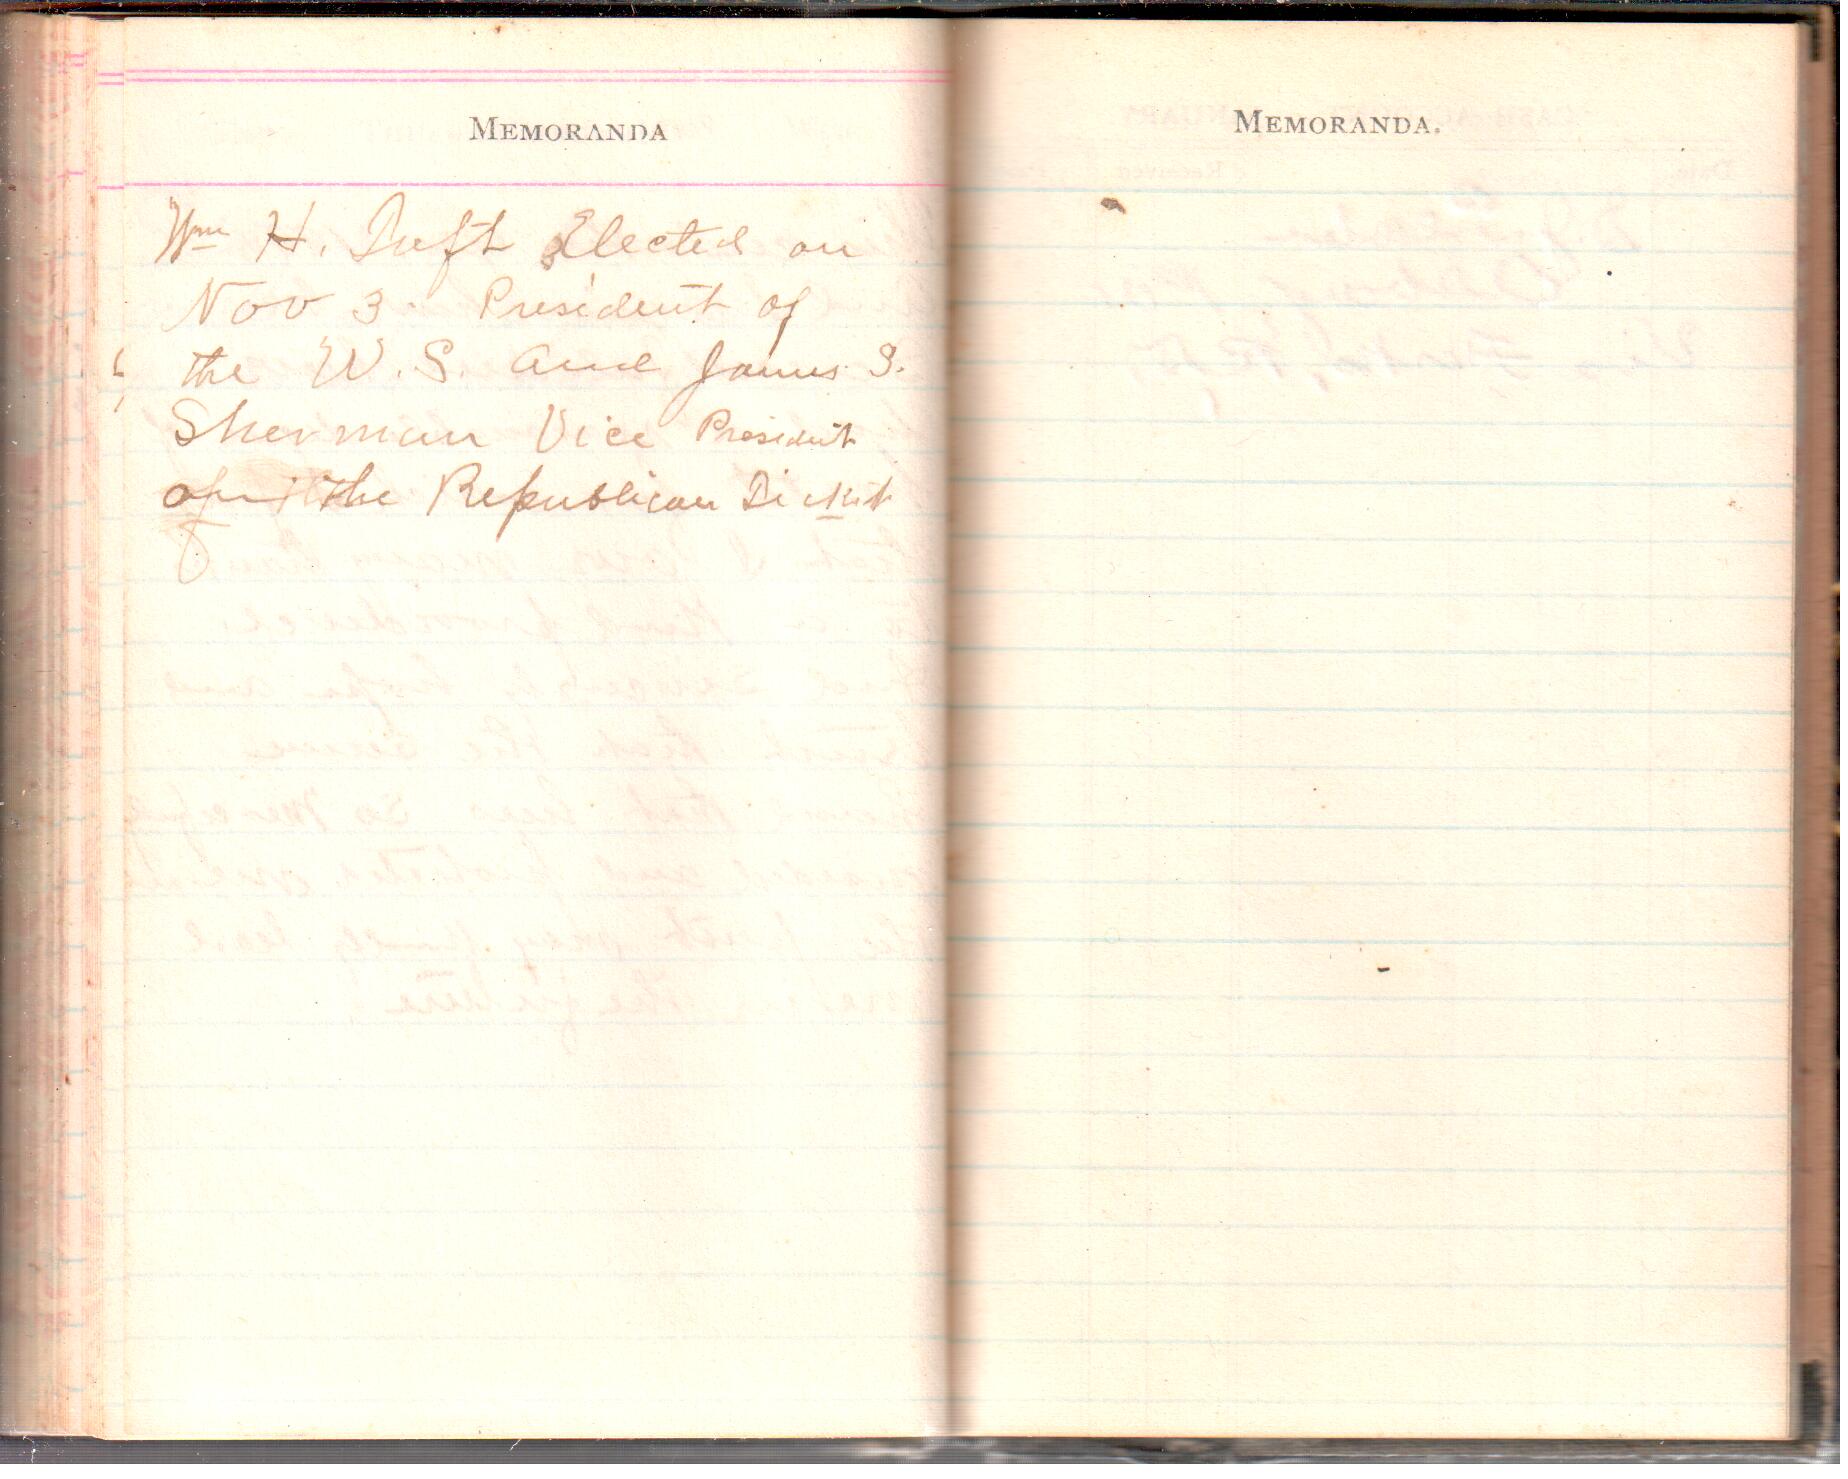 MEMORANDA
Wm H. Taft Elected on
Nov 3. President of
the U.S. and James S.
Sherman Vice President
on the Republican Ticket
MEMORANDA.